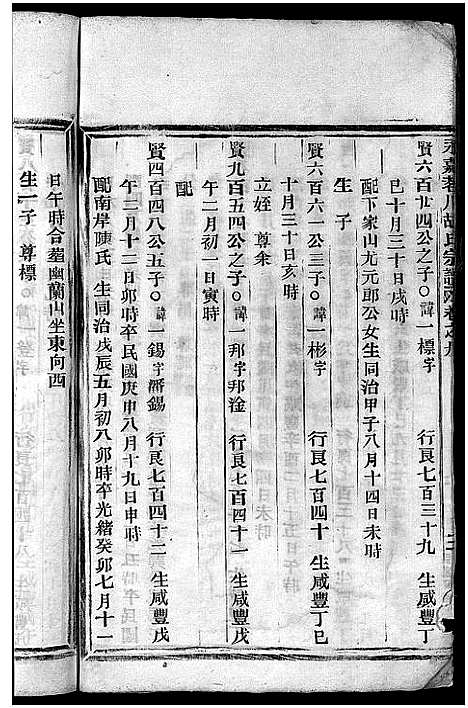 永嘉蓬川胡氏宗譜
賢六百廿四公之子○諱一標字　行良七百三十九　生咸豐丁
巳十月三十日戌時
配下家山尤元郎公女生同治甲子八月十四日未時
生子
賢六百六一公三子○諱一彬字　行良七百四十　生咸豐丁巳
十月三十日亥時
立姪　尊余
賢九百五四公之子○諱一邦字邦淦　行良七百四十一　生咸豐戊
午二月初一日寅時
配
賢四百四八公五子○諱一錫字濟錫　行良七百四十二　生咸豐戊
午三月十二日卯時卒民國庚申八月十九日申時
配南岸陳氏　生同治戊辰五月初八卯時卒光緒癸卯七月十一
日午時合塟幽蘭山坐東向西
生一子　尊標